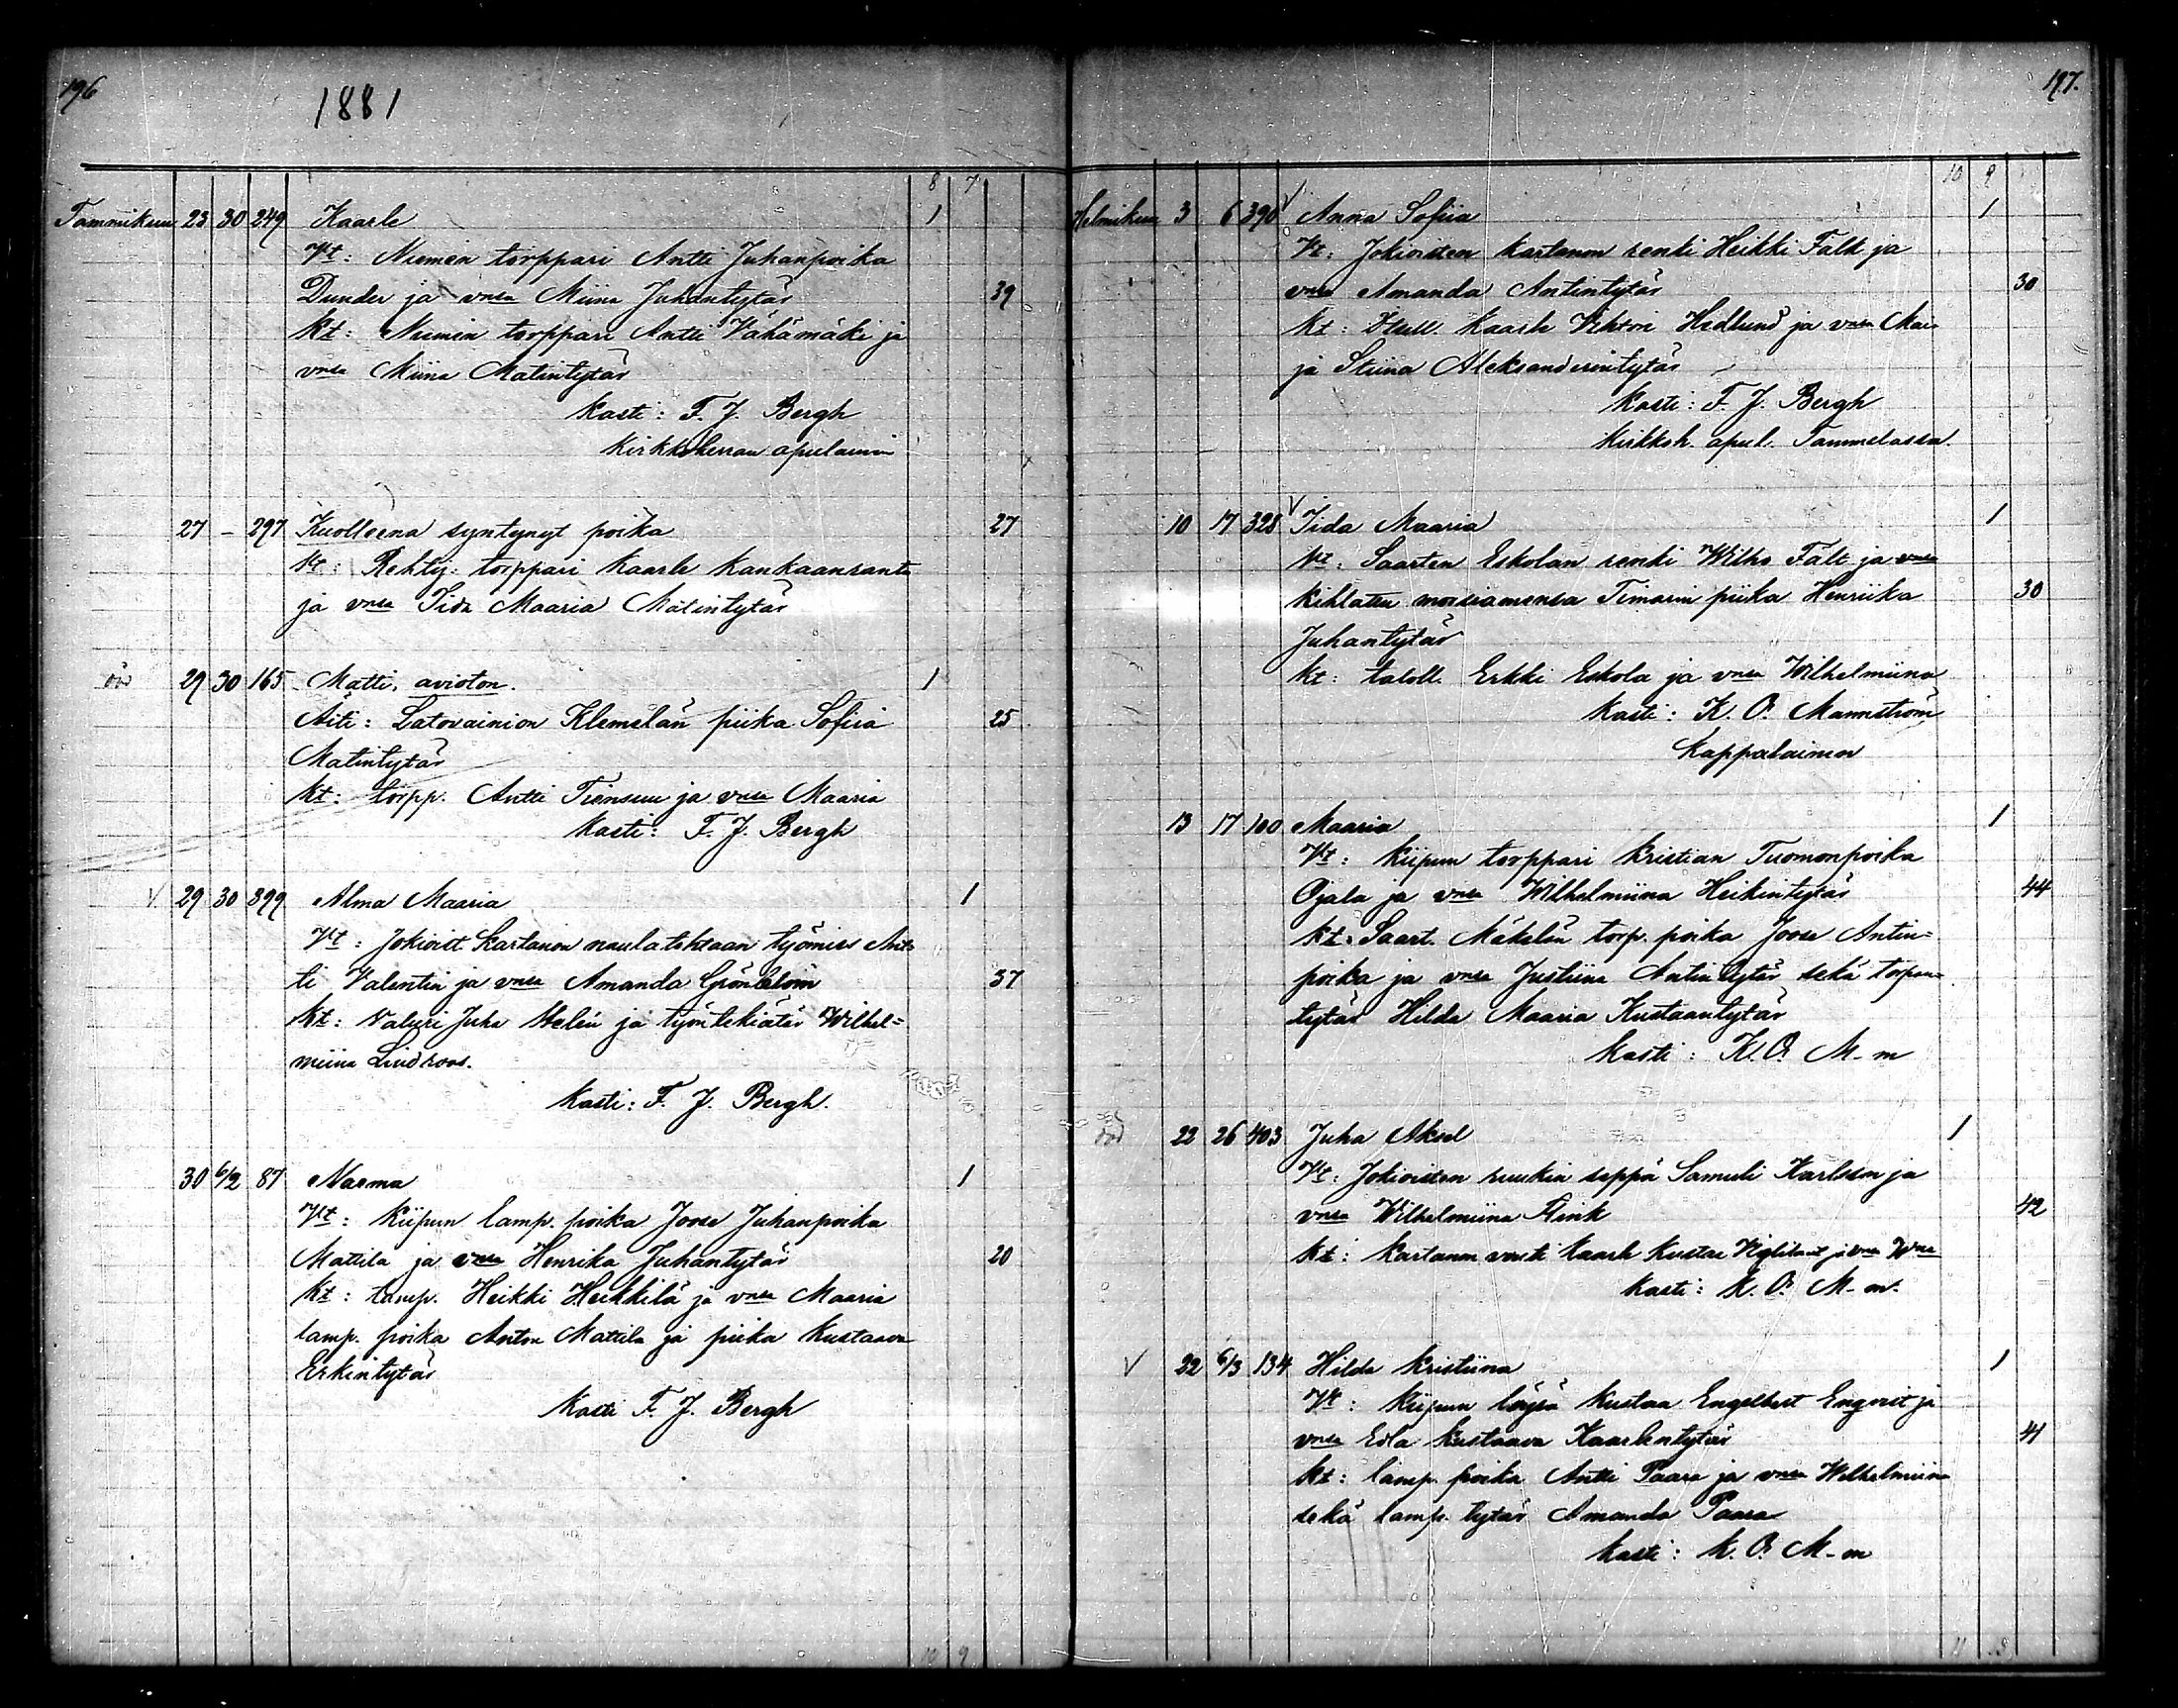 196
1881
8 7
Tammikuu 23 30 249 Kaarle 1
Vt: Niemen torppari Antti Juhanpoika
Dunder ja vmsa Miina Juhantytär 39
kt: Niemen torppari Antti Vähämäki ja
vmsa Miina Matintytär
Kasti: F. J. Bergh
Kirkkoherran apulainen
27 - 297 Kuolleena syntynyt poika 27
Vt: Rehtij. torppari Kaarle Kankaanranta
ja vmsa Iida Maaria Matintytär
29 30 165 Matti, avioton. 1
Äiti: Latovainion Klemelän piika Sofiia 25
Matintytär
kt: torpp. Antti Tiensuu ja vmsa Maaria
Kasti: F. J. Bergh
V. 29 30 399 Alma Maaria 1
Vt: Jokioist. kartanon naulatehtaan työmies Ant-
ti Valentin ja vmsa Amanda Grönblom 37
kt: Valuri Juha Helén ja työntekiätär Wilhel=
miina Lindroos.
Kasti: F. J. Bergh.
30 6/2 87 Naema 1
Vt: Kiipun lamp. poika Joose Juhanpoika
Mattila ja vmsa Henrika Juhantytär 20
kt: lamp. Heikki Heikkilä ja vmsa Maaria
lamp. poika Anton Mattila ja piika Kustaava
Erkintytär
Kasti F. J. Bergh
10 9
197.
10 9
Helmikuu 3 6 390 V Anna Sofiia 1
Vt: Jokioisten kartanon renki Heikki Fält ja
vmsa Amanda Antintytär 30
kt: Kaarle Vihtori Hedlund ja vmsa Mai-
ja Stiina Aleksanderintytär
Kasti: F. J. Bergh
Kirkkoh. apul. Tammelassa.
10 17 328 V Iida Maaria 1
Vt: Saarten Eskolan renki Wilho Fält ja vmsa
kihlattu morsiamensa piika Henriika 30
Juhantytär
kt: taloll. Erkki Eskola ja vmsa Wilhelmiina
Kasti: K. O. Mannström
Kappalainen
13 17 100 Maaria 1
Vt: Kiipun torppari Kristian Tuomonpoika
Ojala ja vmsa Wilhelmiina Heikintytär 44
kt: Saart. Mäkelän torp. poika Joose Antin=
poika ja vmsa Justiina Antintytär sekä torpan-
tytär Hilda Maaria Kustaantytär
Kasti: K. O. M-m
22 26 403 Juha Aksel 1
Vt: Jokioisten ruukin seppä Samuli Karlsson ja
vmsa Wilhelmiina Flink 42
kt: Kartanon vouti Kaarle Kustaa ja vmsa
Kasti: K. O. M-m.
V 22 6/3 134 Hilda Kristiina 1
Vt: Kiipun löysä Kustaa Engelbert Enqvist ja
vmsa Edla Kustaava Kaarlentytär 41
kt: lamp. poika Antti Paara ja vmsa Wilhelmiina
sekä lamp. tytär Amanda Paara
Kasti: K. O. M-m
11 8